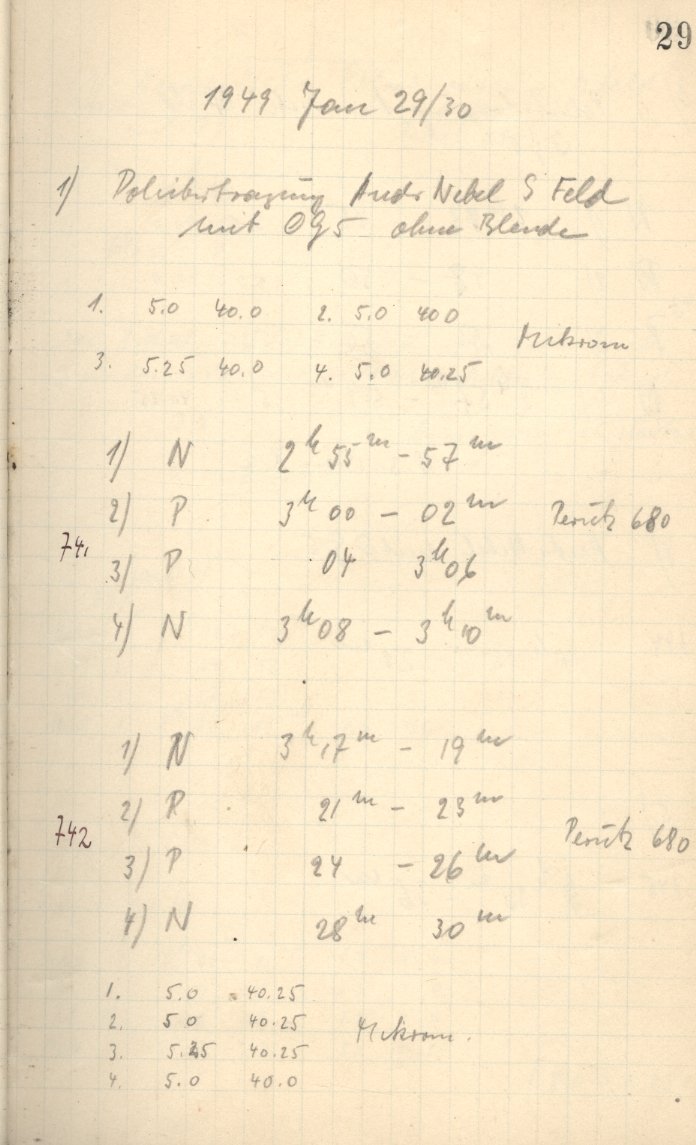 29
1949 Jan 29/30
1) Polübertragung Andr Nebel S Feld
mit OG5 ohne Blende
1. 5.0 40.0 2. 5.0 400
Mikrom
3. 5.25 40.0 4. 5.0 40.25
1) N 2h 55m - 57m
2) P 3h 00 - 02m Perutz 680
741
3) P 04 3h06
4) N 3h08 - 3h10m
1) N 3h17m - 19m
2) P 21m - 23m
742 Perutz 680
3) P 24 - 26m
4) N 28m 30m
1. 5.0 40.25
2. 50 40.25
Mikrom.
3. 5.25 40.25
4. 5.0 40.0